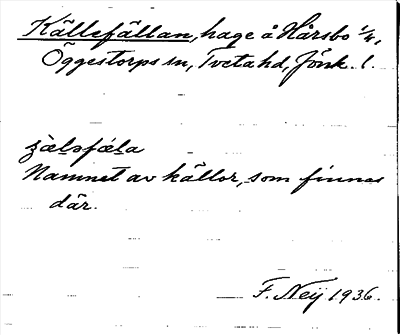 Källefällan, hage å Hårsbo 1/4,
Öggestorps sn, Tveta hd, Jönk. l.
Namnet av källor, som finnes
där.
F. Neij 1936.